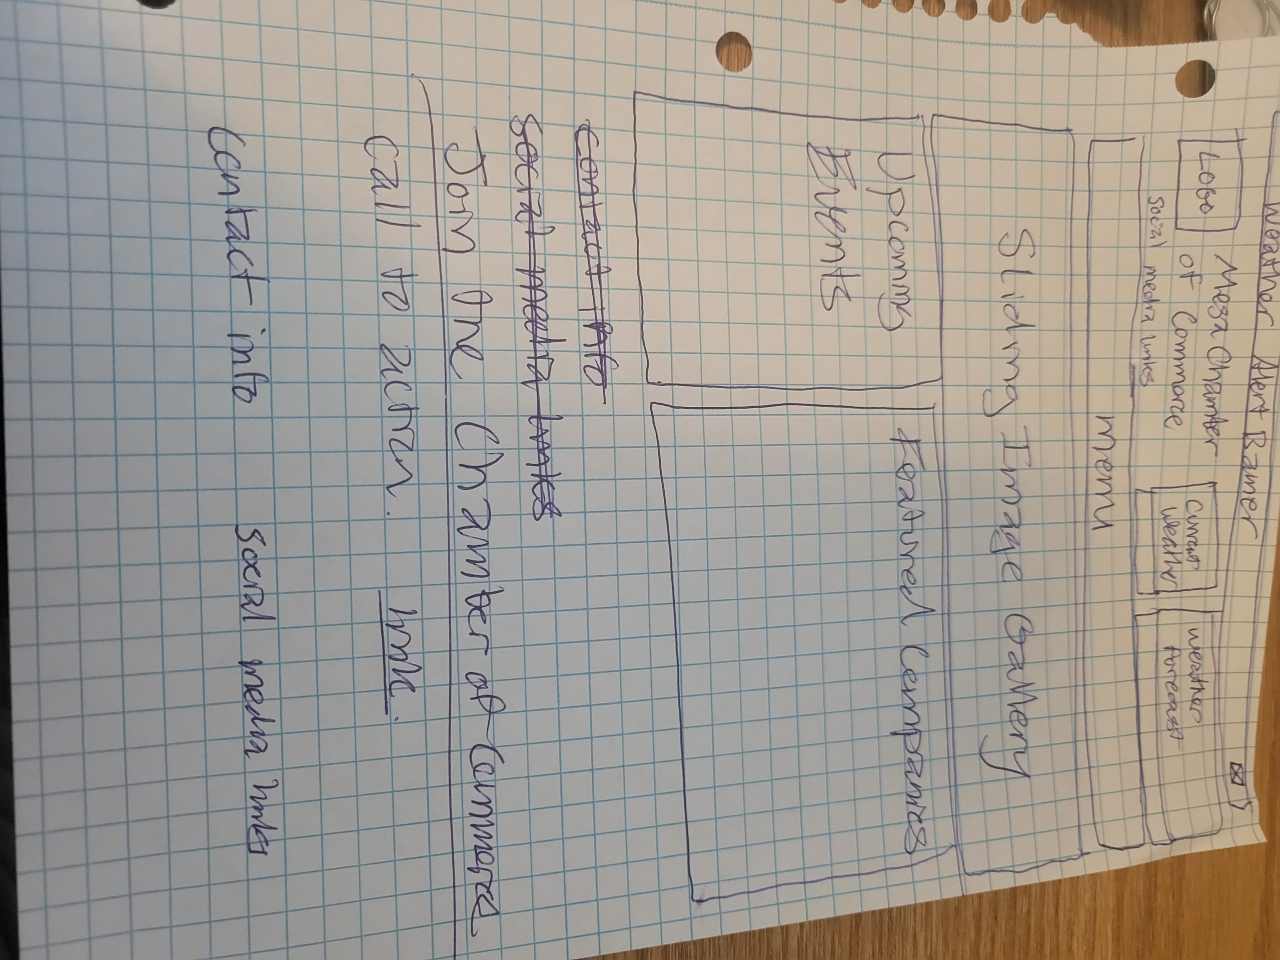 Weather Alert Banner
LOGO
Mesa Chamber
of Commerce
social media links
Current
Weather
Weather
Forecast
menu
Sliding Image Gallery
Upcoming
Events
Featured Companies
contact info
social media links
Join the Chamber of Commerce
call to action. link.
contact info social media links